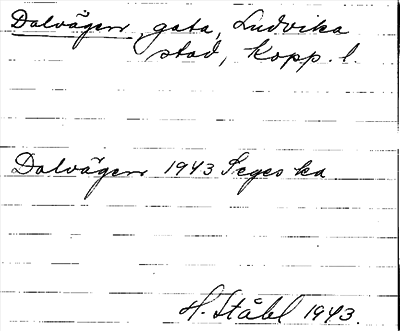 Dalvägen, gata, Ludvika
stad, Kopp. l.
Dalvägen 1943 Seges ka
H. Ståhl 1943.